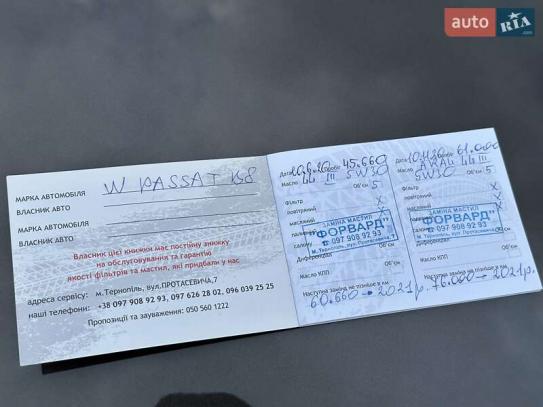 auto RIA
МАРКА АВТОМОБІЛЯ W PASSAT
ВЛАСНИК АВТО
МАРКА АВТОМОБІЛЯ
ВЛАСНИК АВТО
Власник цієї книжки має постійну знижку
на обслуговування та гарантію
якості фільтрів та мастил, які придбали у нас
адреса сервісу: м. Тернопіль, вул.ПРОТАСЕВИЧА,7
наші телефони: +38 097 908 92 93, 097 626 28 02, 096 039 25 25
Пропозиції та зауваження: 050 560 1222
Дата 20.6.20 Пробіг 45.660
Масло 44 III 5W30 Об'єм 5
Фільтр
повітряний X
масляний X
паливний
салону X
ЗАМІНА МАСТИЛ
"ФОРВАРД"
097 908 92 93
м. Тернопіль, вул. Протасевича, 7
Диференціал Об'єм
Масло КПП Об'єм
Наступна заміна не пізніше в км
60.660 → 2021р.
Дата 10.11.20 Пробіг 61.000
Масло ARAL 44 III
5W30 Об'єм 5
Фільтр
повітряний X
масляний X
паливний
салону
ЗАМІНА МАСТИЛ
"ФОРВАРД"
097 908 92 93
м. Тернопіль, вул. Протасевича, 7
Диференціал Об'єм
Масло КПП Об'єм
Наступна заміна не пізніше в км
76.000 → 2021р.